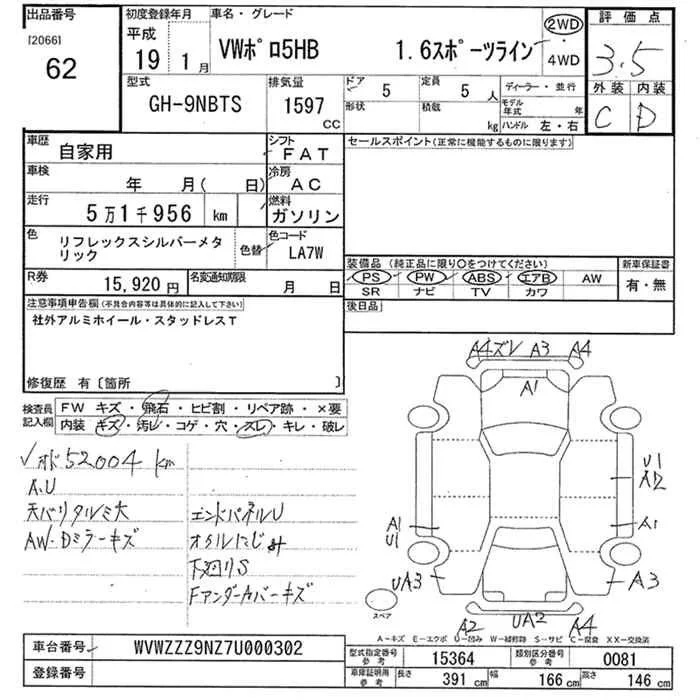 出品番号
[2066]
62
初度登録年月
平成
19 1月
車名・グレード
VWポロ5HB 1.6スポーツライン
2WD
・
4WD
評価点
3.5
外装 内装
C D
型式
GH-9NBTS
排気量
1597
CC
ドア
5
形状
定員
5 人
積載
kg
ディーラー・並行
モデル年式 年
ハンドル 左・右
車歴
自家用
シフト
FAT
車検
年 月( 日)
冷房
AC
走行
5万1千956 km
燃料
ガソリン
色
リフレックスシルバーメタリック
色替
色コード
LA7W
R券
15,920円
名変通知期限
月 日
セールスポイント(正常に機能するものに限ります)
装備品(純正品に限り○をつけてください)
PS PW ABS エアB AW
SR ナビ TV カワ
新車保証書
有・無
後日品
注意事項申告欄(不具合内容等は具体的に記入して下さい)
社外アルミホイール・スタッドレスT
修復歴 有〔箇所 〕
検査員記入欄
FW キズ・飛石・ヒビ割・リペア跡・×要
内装 キズ・汚レ・コゲ・穴・スレ・キレ・破レ
オド52004km
A.U
天バリタルミ大
AW・Dミラーキズ
エンドパネルU
オイルにじみ
下廻りS
Fアンダーカバーキズ
A4ズレ A3 A4
A1
U1
A2
A1
U1
A1
UA3
A3
スペア
A2
UA2
A4
A-キズ E-エクボ U-凹み W-補修跡 S-サビ C-腐食 XX-交換済
車台番号
WVWZZZ9NZ7U000302
登録番号
型式指定番号 参考
15364
類別区分番号 参考
0081
車庫証明用 参考
長さ 391 cm
幅 166 cm
高さ 146 cm